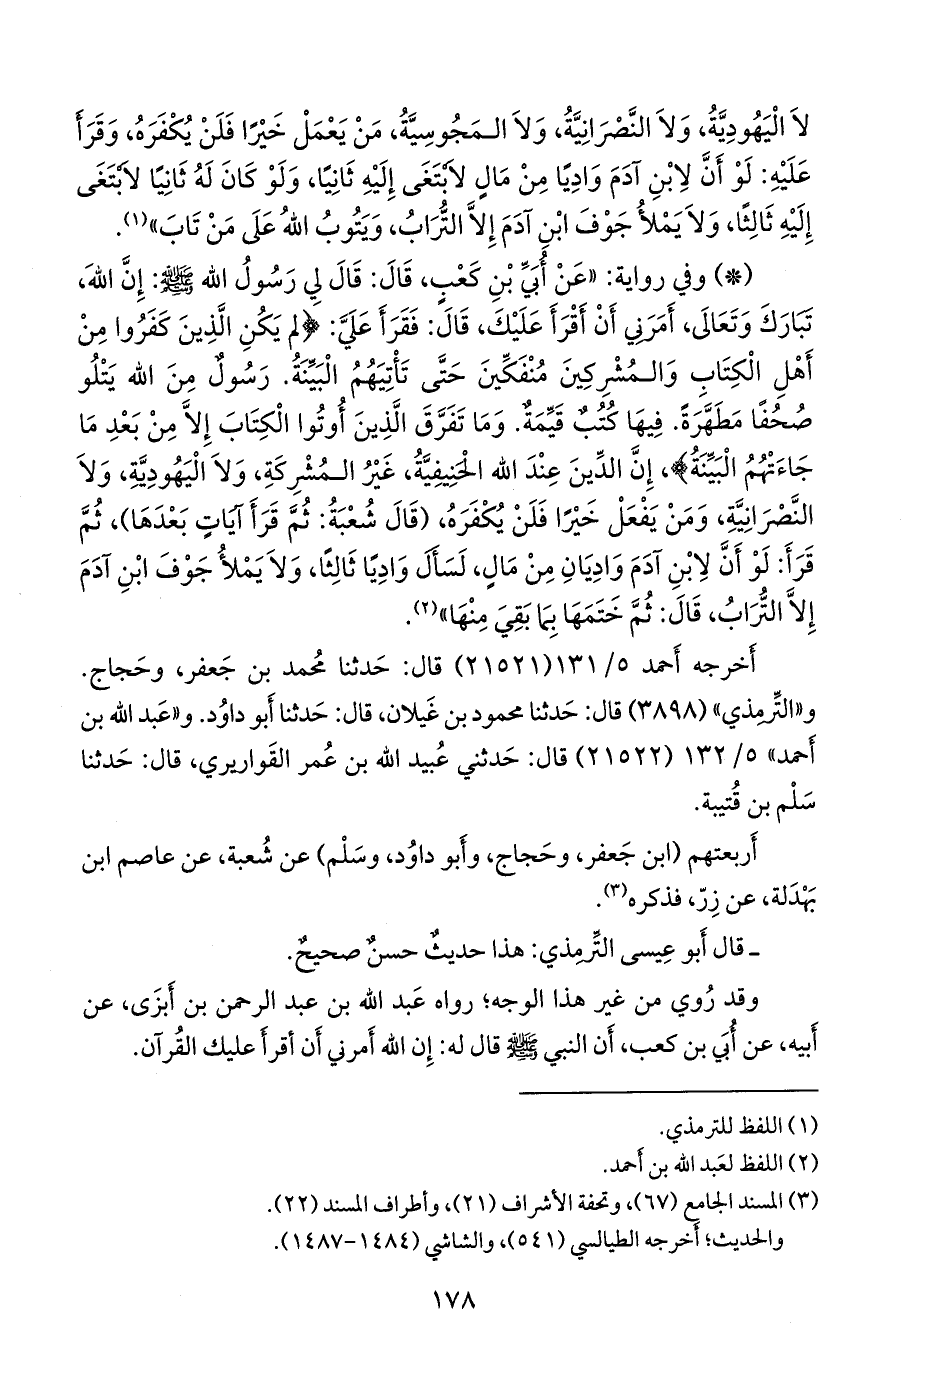 لاَ الْيَهُودِيَّةُ، وَلاَ النَّصْرَانِيَّةُ، وَلاَ الـمَجُوسِيَّةُ، مَنْ يَعْمَلْ خَيْرًا فَلَنْ يُكْفَرَهُ، وَقَرَأَ
عَلَيْهِ: لَوْ أَنَّ لاِبْنِ آدَمَ وَادِيًا مِنْ مَالٍ لاَبْتَغَى إِلَيْهِ ثَانِيًا، وَلَوْ كَانَ لَهُ ثَانِيًا لاَبْتَغَى
إِلَيْهِ ثَالِثًا، وَلاَ يَمْلأُ جَوْفَ ابْنِ آدَمَ إِلاَّ التُّرَابُ، وَيَتُوبُ اللهُ عَلَى مَنْ تَابَ»(١).
(*) وفي رواية: «عَنْ أُبَيِّ بْنِ كَعْبٍ، قَالَ: قَالَ لِي رَسُولُ الله ﷺ: إِنَّ اللهَ،
تَبَارَكَ وَتَعَالَى، أَمَرَنِي أَنْ أَقْرَأَ عَلَيْكَ، قَالَ: فَقَرَأَ عَلَيَّ: ﴿لم يَكُنِ الَّذِينَ كَفَرُوا مِنْ
أَهْلِ الْكِتَابِ وَالـمُشْرِكِينَ مُنْفَكِّينَ حَتَّى تَأْتِيَهُمُ الْبَيِّنَةُ. رَسُولٌ مِنَ الله يَتْلُو
صُحُفًا مُطَهَّرَةً. فِيهَا كُتُبٌ قَيِّمَةٌ. وَمَا تَفَرَّقَ الَّذِينَ أُوتُوا الْكِتَابَ إِلاَّ مِنْ بَعْدِ مَا
جَاءَتْهُمُ الْبَيِّنَةُ﴾، إِنَّ الدِّينَ عِنْدَ الله الْحَنِيفِيَّةُ، غَيْرُ الـمُشْرِكَةِ، وَلاَ الْيَهُودِيَّةِ، وَلاَ
النَّصْرَانِيَّةِ، وَمَنْ يَفْعَلْ خَيْرًا فَلَنْ يُكْفَرَهُ، (قَالَ شُعْبَةُ: ثُمَّ قَرَأَ آيَاتٍ بَعْدَهَا)، ثُمَّ
قَرَأَ: لَوْ أَنَّ لاِبْنِ آدَمَ وَادِيَانِ مِنْ مَالٍ، لَسَأَلَ وَادِيًا ثَالِثًا، وَلاَ يَمْلأُ جَوْفَ ابْنِ آدَمَ
إِلاَّ التُّرَابُ، قَالَ: ثُمَّ خَتَمَهَا بِمَا بَقِيَ مِنْهَا»(٢).
أَخرجه أَحمد ٥/ ١٣١(٢١٥٢١) قال: حَدثنا مُحمد بن جَعفر، وحَجاج.
و«التِّرمِذي» (٣٨٩٨) قال: حَدثنا محمود بن غَيلان، قال: حَدثنا أَبو داوُد. و«عَبد الله بن
أَحمد» ٥/ ١٣٢ (٢١٥٢٢) قال: حَدثني عُبيد الله بن عُمر القَواريري، قال: حَدثنا
سَلْم بن قُتيبة.
أَربعتهم (ابن جَعفر، وحَجاج، وأَبو داوُد، وسَلْم) عن شُعبة، عن عاصم ابن
بَهْدَلة، عن زِرّ، فذكره(٣).
ـ قال أَبو عِيسى التِّرمِذي: هذا حديثٌ حسنٌ صحيحٌ.
وقد رُوي من غير هذا الوجه؛ رواه عَبد الله بن عبد الرحمن بن أَبزَى، عن
أَبيه، عن أُبَي بن كعب، أَن النبي ﷺ قال له: إِن الله أَمرني أَن أَقرأَ عليك القُرآن.
(١) اللفظ للترمذي.
(٢) اللفظ لعَبد الله بن أَحمد.
(٣) المسند الجامع (٦٧)، وتحفة الأشراف (٢١)، وأطراف المسند (٢٢).
والحديث؛ أَخرجه الطيالسي (٥٤١)، والشاشي (١٤٨٤-١٤٨٧).
١٧٨